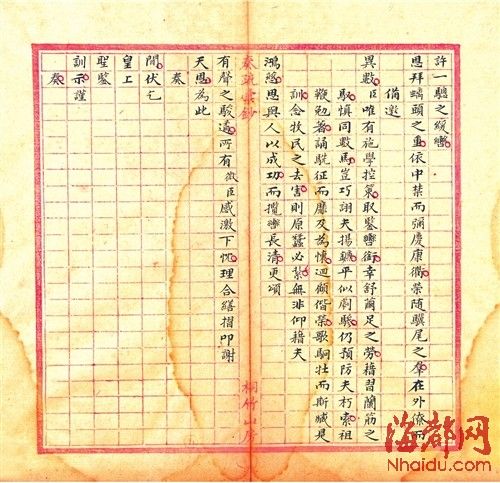 許一驄之緩轡
恩拜螭頭之重依中禁而彌慶康衢榮隨驥尾之羣在外僚而
備邀
異數臣唯有施學控箠取鑒轡銜幸舒繭足之勞藉習蘭筋之
馭慎同數馬豈巧詡夫揚鑣平似劇驂仍預防夫朽索祖
鞭勉著誦駪征而靡及為懷迴傾偕榮歌駉牡而斯臧是
訓念扶民之去害則原蠶必禁無非仰藉夫
鴻慈恩與人以成功而攬轡長清更頌
奏疏彙鈔
有聲之駿遹所有微臣感激下忱理合繕摺叩謝
天恩為此
奏
聞伏乞
皇上
聖鑒
訓示謹
奏
桐竹山房
海都网
Nhaidu.com